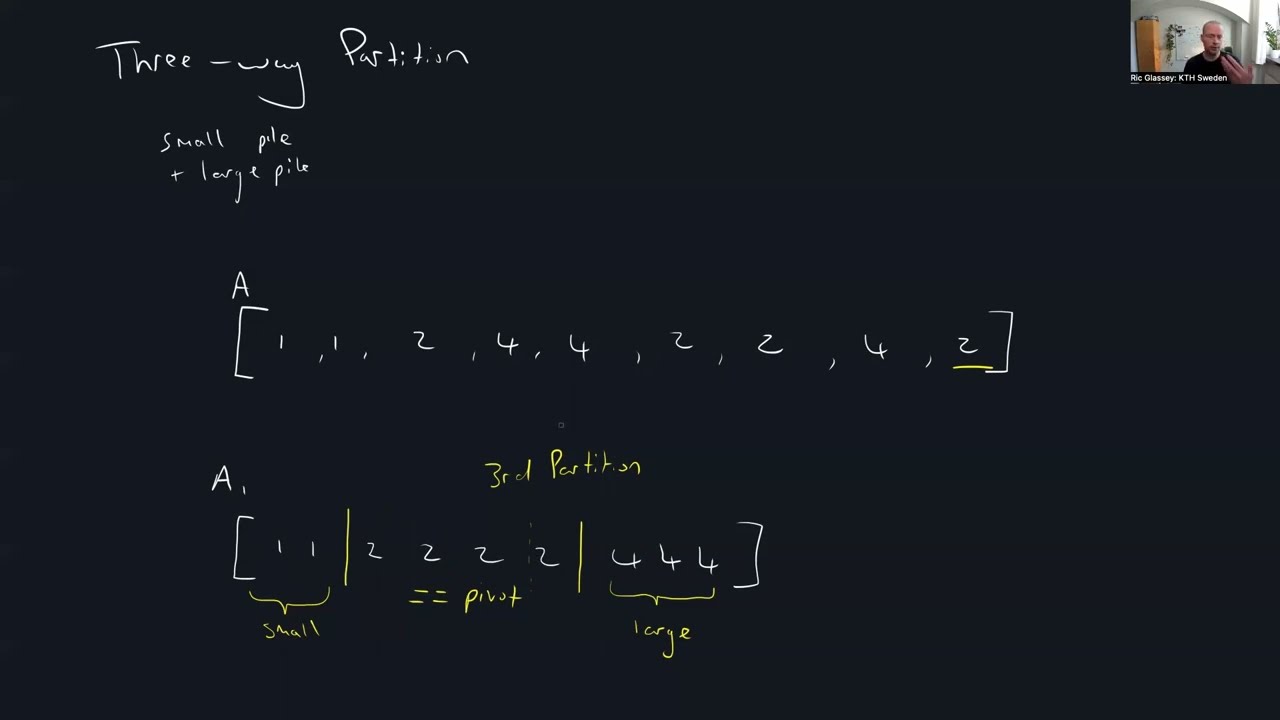 Three-way Partition
Ric Glassey: KTH Sweden
small pile
+ large pile
A
[ 1 , 1 , 2 , 4 , 4 , 2 , 2 , 4 , 2 ]
3rd Partition
A1
[ 1 1 | 2 2 2 2 | 4 4 4 ]
== pivot
small
large